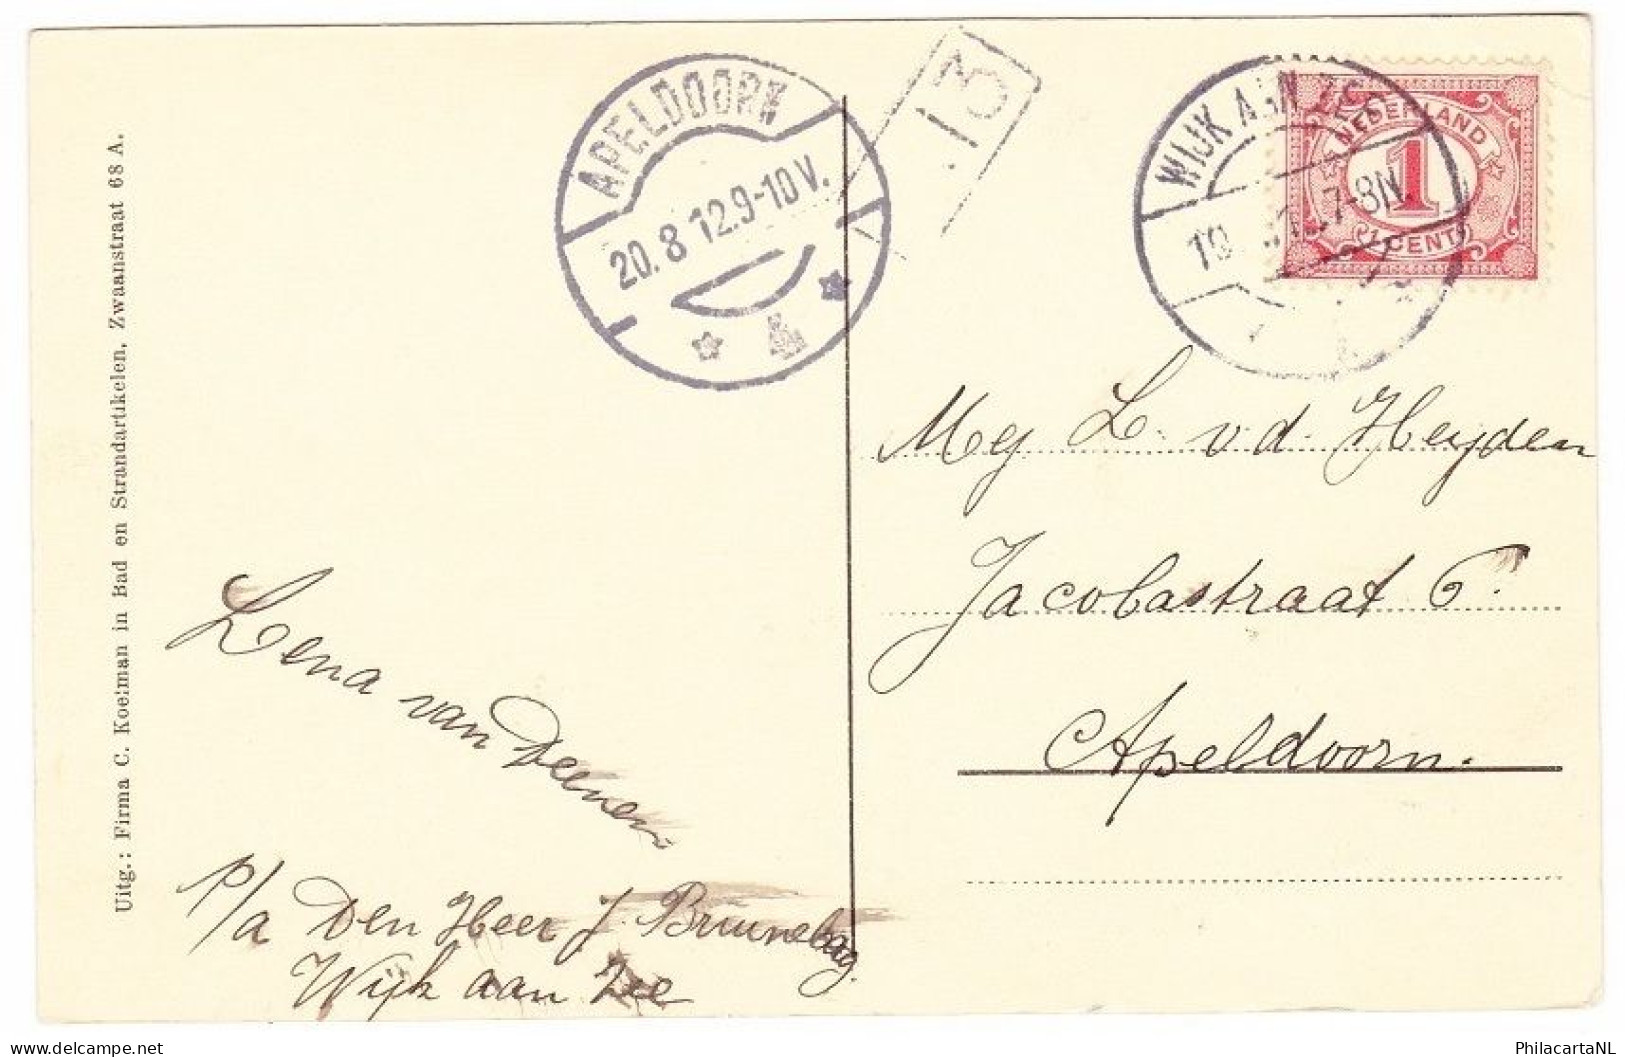 Uitg.: Firma C. Koelman in Bad en Strandartikelen, Zwaanstraat 68 A.
APELDOORN
20.8 12.9-10V.
4
13
WIJK AAN ZEE
19 7-8N
NEDERLAND
1
CENT
Mej L. v. d. Heyden
Jacobastraat 6.
Apeldoorn.
Lena van Deenen
p/a Den Heer J. Bruinebag.
Wijk aan Zee
PhilacartaNL